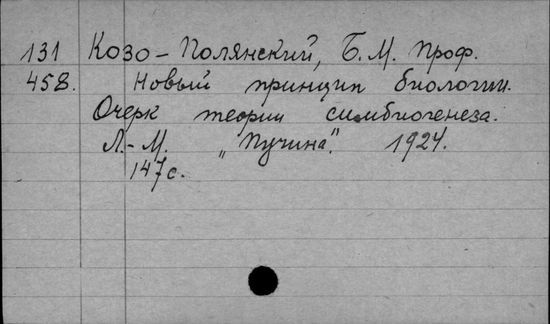 131 Козо-Полянский, Б.М. проф.
458. Новый принцип биологии.
Очерк теории симбиогенеза.
Л.-М. „Пучина". 1924.
147с.